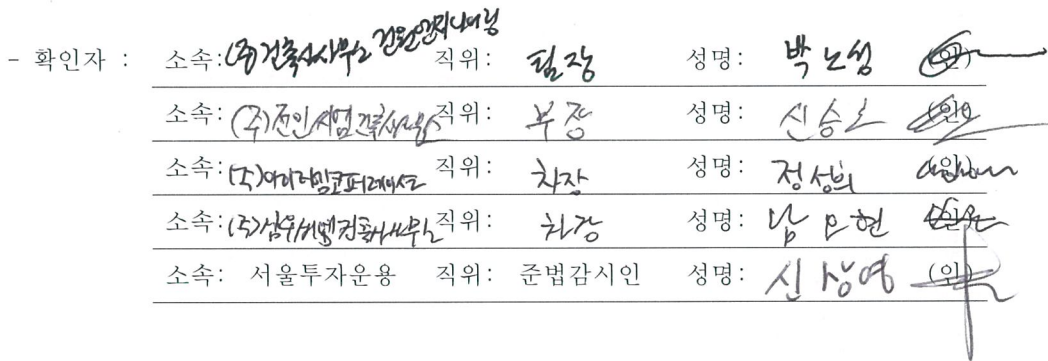 - 확인자 : 소속: (주)건축사사무소 건원엔지니어링 직위: 팀장 성명: 박노성 (인)
소속: (주)전인씨엠건축사사무소 직위: 부장 성명: 신승 (인)
소속: (주)아이티엠코퍼레이션 직위: 차장 성명: 정성희 (인)
소속: (주)삼우씨엠건축사사무소 직위: 차장 성명: 남 현 (인)
소속: 서울투자운용 직위: 준법감시인 성명: 신상영 (인)